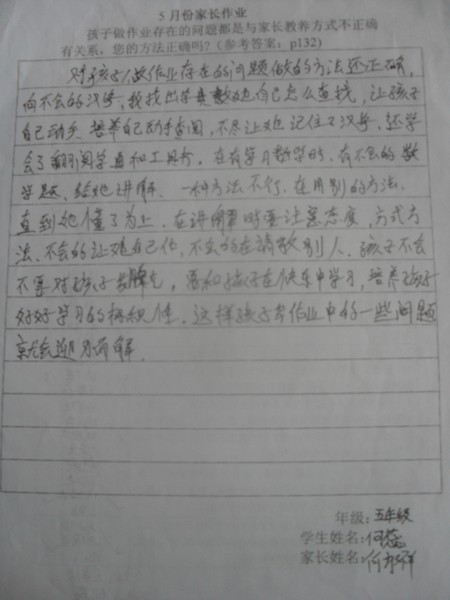 5月份家长作业
孩子做作业存在的问题都是与家长教养方式不正确
有关系，您的方法正确吗？（参考答案：p132）
对孩子做作业存在的问题做的方法还正确，
向不会的汉字，我找出字典教她自己怎么查找，让孩子
自己动头 培养自己动手查阅，不尽让她记住了汉字，还学
会了翻阅字典和工具书。在有学习数学时，有不会的数
学题，给她讲解，一种方法不行，在用别的方法，
直到她懂了为止，在讲解时要注意态度，方式方
法，不会的让她自己化，不会的在请教别人，孩子不会
不要对孩子发脾气，要和孩子在快乐中学习，培养孩子
好好学习的积极性，这样孩子在作业中的一些问题
就会迎刃而解．
年级：五年级
学生姓名：何蕊
家长姓名：何